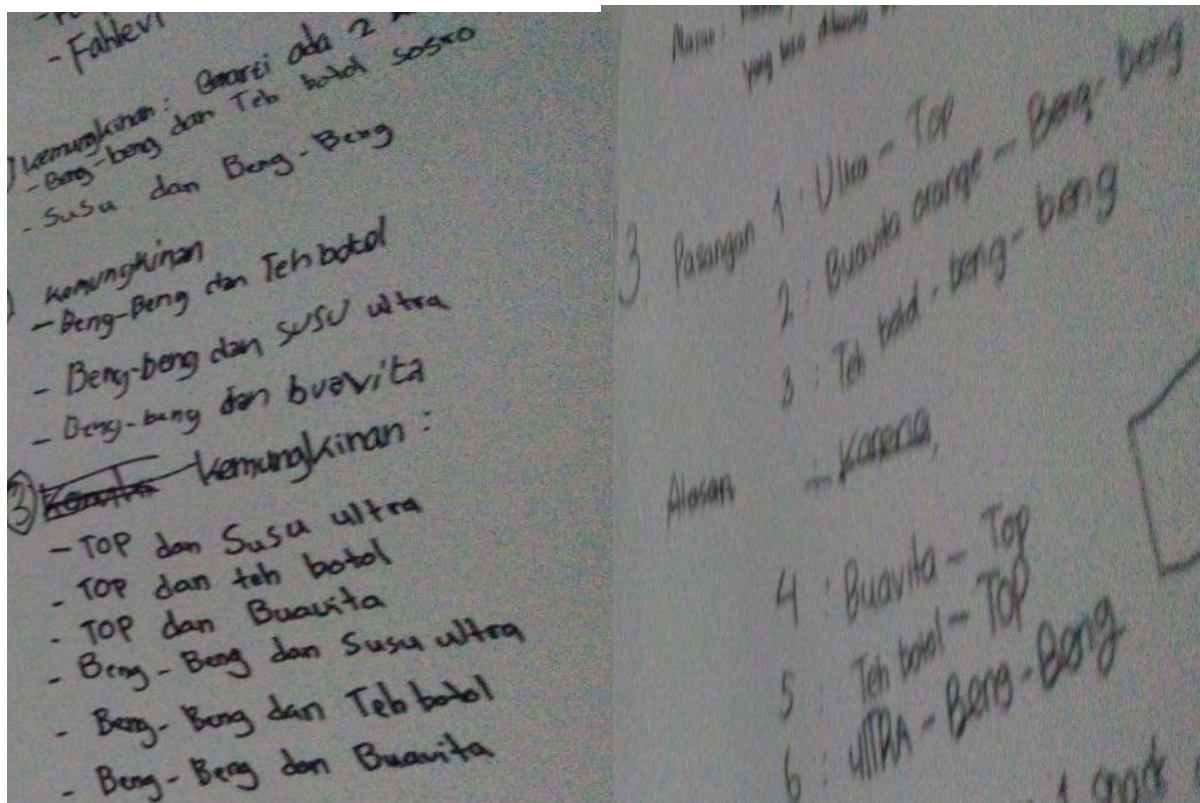 - Fahlevi
kemungkinan: Berarti ada 2
- Beng-beng dan Teh botol sosro
- Susu dan Beng-Beng
kemungkinan
- Beng-Beng dan Teh botol
- Beng-beng dan SUSU ultra
- Beng-beng dan buavita
③ kemungkinan :
- TOP dan Susu ultra
- TOP dan teh botol
- TOP dan Buavita
- Beng-Beng dan Susu ultra
- Beng-Beng dan Teh botol
- Beng-Beng dan Buavita
yang bisa
3. Pasangan 1 : Ultra - Top
2 : Buavita orange - Beng-beng
3 : Teh botol - beng-beng
Alasan : Karena,
4 : Buavita - Top
5 : Teh botol - TOP
6 : ULTRA - Beng-Beng
1 snack